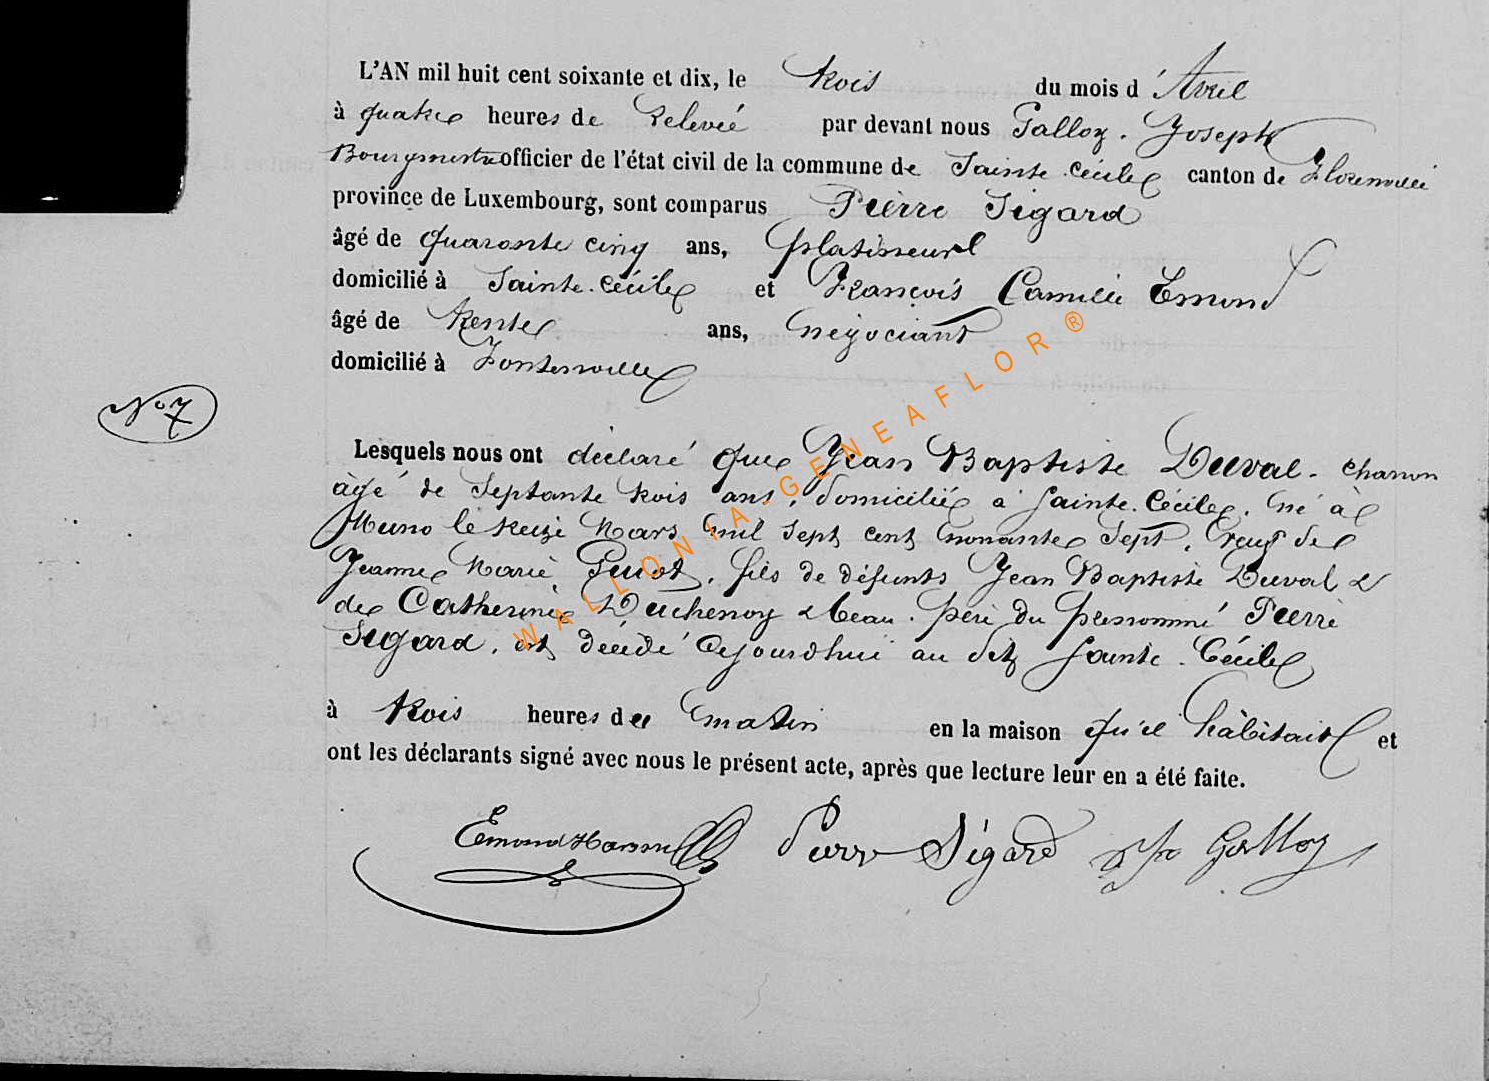 L'AN mil huit cent soixante et dix, le trois du mois d'Avril
à quatre heures de Relevée par devant nous Galloy. Joseph
Bourgmestre officier de l'état civil de la commune de Sainte Cécile canton de Florenville
province de Luxembourg, sont comparus Pierre Sigard
âgé de quarante cinq ans,
domicilié à Sainte-Cécile et François Camille Emond
âgé de trente ans, négociant
domicilié à Fontenoille
N° 7
Lesquels nous ont déclaré que Jean Baptiste Duval - charron
âgé de Septante trois ans, domicilié à Sainte-Cécile, né à
Muno le treize Mars mil sept cent nonante sept, veuf de
Jeanne Marie, fils de défunts Jean Baptiste Duval &
de Catherine Duchenoy & beau-père du prénommé Pierre
Sigard, est décédé cejourd'hui au dit Sainte-Cécile
à trois heures du matin en la maison qu'il habitait et
ont les déclarants signé avec nous le présent acte, après que lecture leur en a été faite.
Emond Pierre Sigard Galloy
WALLONIA-GENEAFLOR®